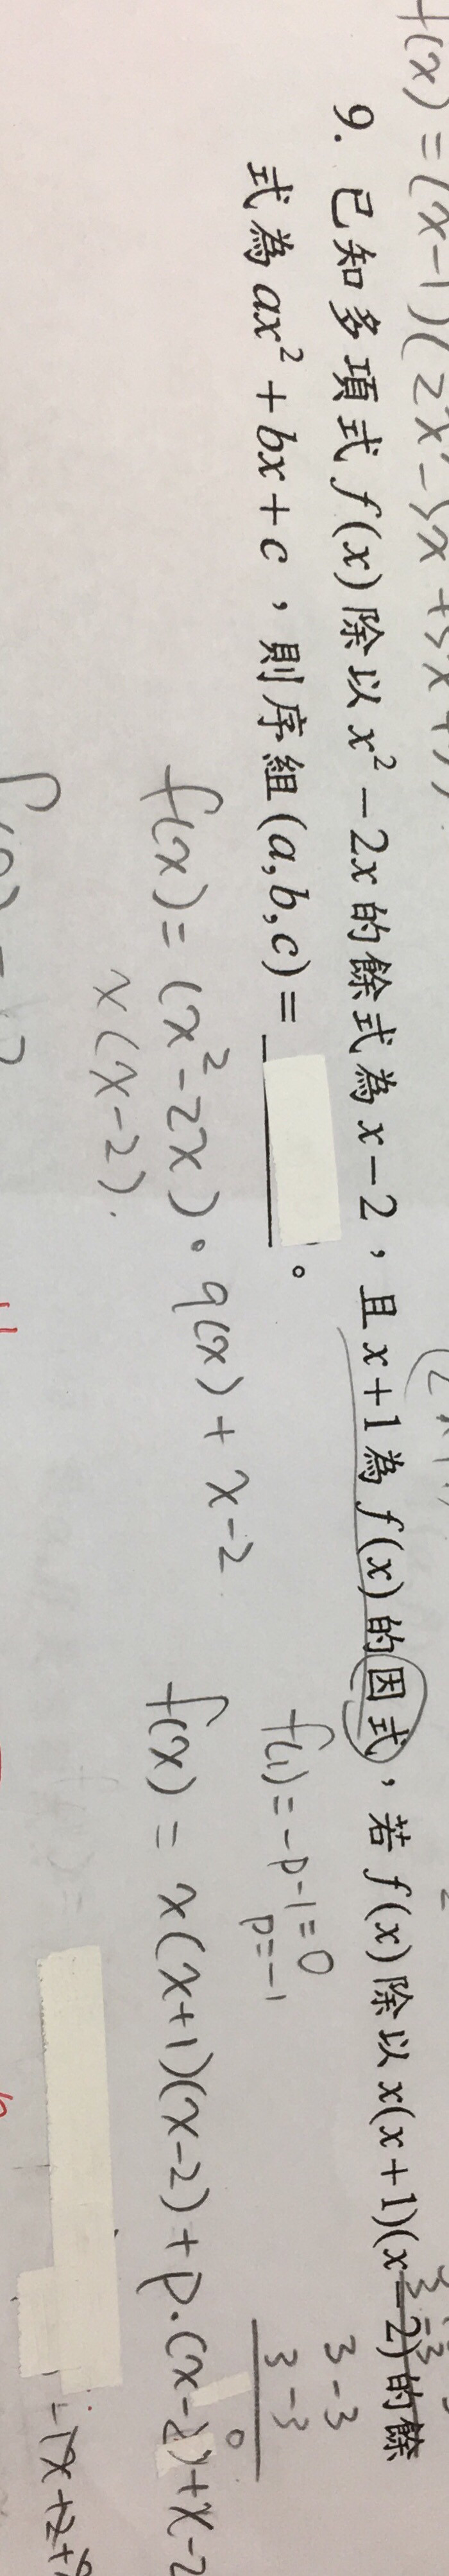 f(x) = (x-1)(2x
9. 已知多項式 f(x) 除以 x² - 2x 的餘式為 x - 2，且 x + 1 為 f(x) 的因式，若 f(x) 除以 x(x + 1)(x - 2) 的餘
式為 ax² + bx + c，則序組 (a, b, c) = ______。
3 - 3
3 - 3
0
f(1) = -p-1 = 0
p = -1
f(x) = (x² - 2x) · q(x) + x - 2
x(x-2).
f(x) = x(x+1)(x-2) + p·(x-2) + x-2